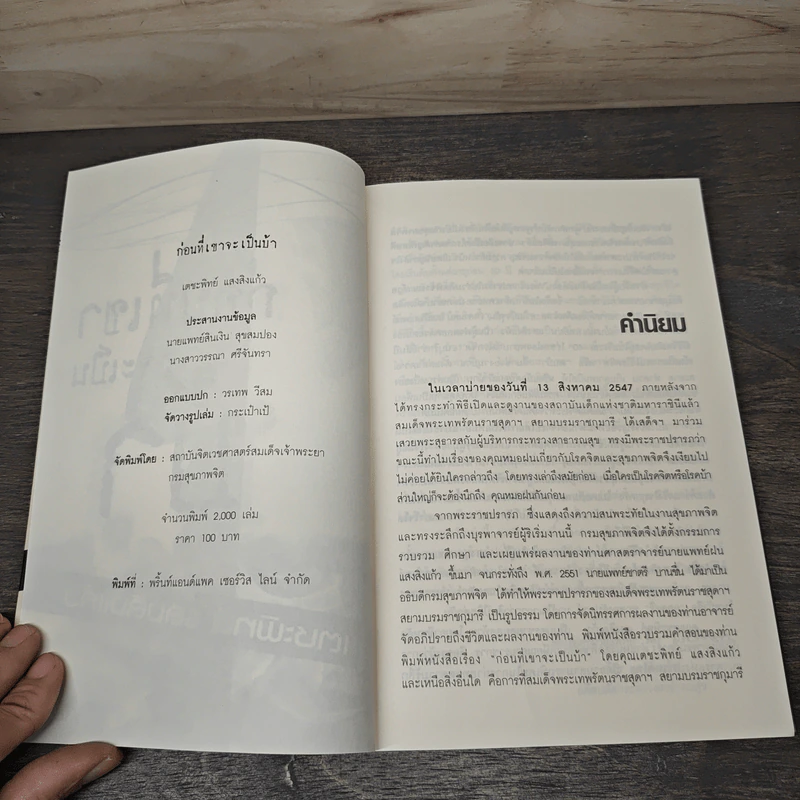 ก่อนที่เขาจะเป็นบ้า
เตชะพิทย์ แสงสิงแก้ว
ประสานงานข้อมูล
นายแพทย์สินเงิน สุขสมปอง
นางสาววรรณา ศรีจันทรา
ออกแบบปก : วรเทพ วีสม
จัดวางรูปเล่ม : กระเป๋าเป้
จัดพิมพ์โดย : สถาบันจิตเวชศาสตร์สมเด็จเจ้าพระยา
กรมสุขภาพจิต
จำนวนพิมพ์ 2,000 เล่ม
ราคา 100 บาท
พิมพ์ที่ : พริ้นท์แอนด์แพค เซอร์วิส ไลน์ จำกัด
คำนิยม
ในเวลาบ่ายของวันที่ 13 สิงหาคม 2547 ภายหลังจาก
ได้ทรงกระทำพิธีเปิดและดูงานของสถาบันเด็กแห่งชาติมหาราชินีแล้ว
สมเด็จพระเทพรัตนราชสุดาฯ สยามบรมราชกุมารี ได้เสด็จฯ มาร่วม
เสวยพระสุธารสกับผู้บริหารกระทรวงสาธารณสุข ทรงมีพระราชปรารภว่า
ขณะนี้ทำไมเรื่องของคุณหมอฝนเกี่ยวกับโรคจิตและสุขภาพจิตจึงเงียบไป
ไม่ค่อยได้ยินใครกล่าวถึง โดยทรงเล่าถึงสมัยก่อน เมื่อใครเป็นโรคจิตหรือโรคบ้า
ส่วนใหญ่ก็จะต้องนึกถึง คุณหมอฝนกันก่อน
จากพระราชปรารภ ซึ่งแสดงถึงความสนพระทัยในงานสุขภาพจิต
และทรงระลึกถึงบุรพาจารย์ผู้ริเริ่มงานนี้ กรมสุขภาพจิตจึงได้ตั้งกรรมการ
รวบรวม ศึกษา และเผยแพร่ผลงานของท่านศาสตราจารย์นายแพทย์ฝน
แสงสิงแก้ว ขึ้นมา จนกระทั่งถึง พ.ศ. 2551 นายแพทย์ชาตรี บานชื่น ได้มาเป็น
อธิบดีกรมสุขภาพจิต ได้ทำให้พระราชปรารภของสมเด็จพระเทพรัตนราชสุดาฯ
สยามบรมราชกุมารี เป็นรูปธรรม โดยการจัดนิทรรศการผลงานของท่านอาจารย์
จัดอภิปรายถึงชีวิตและผลงานของท่าน พิมพ์หนังสือรวบรวมคำสอนของท่าน
พิมพ์หนังสือเรื่อง "ก่อนที่เขาจะเป็นบ้า" โดยคุณเตชะพิทย์ แสงสิงแก้ว
และเหนือสิ่งอื่นใด คือการที่สมเด็จพระเทพรัตนราชสุดาฯ สยามบรมราชกุมารี